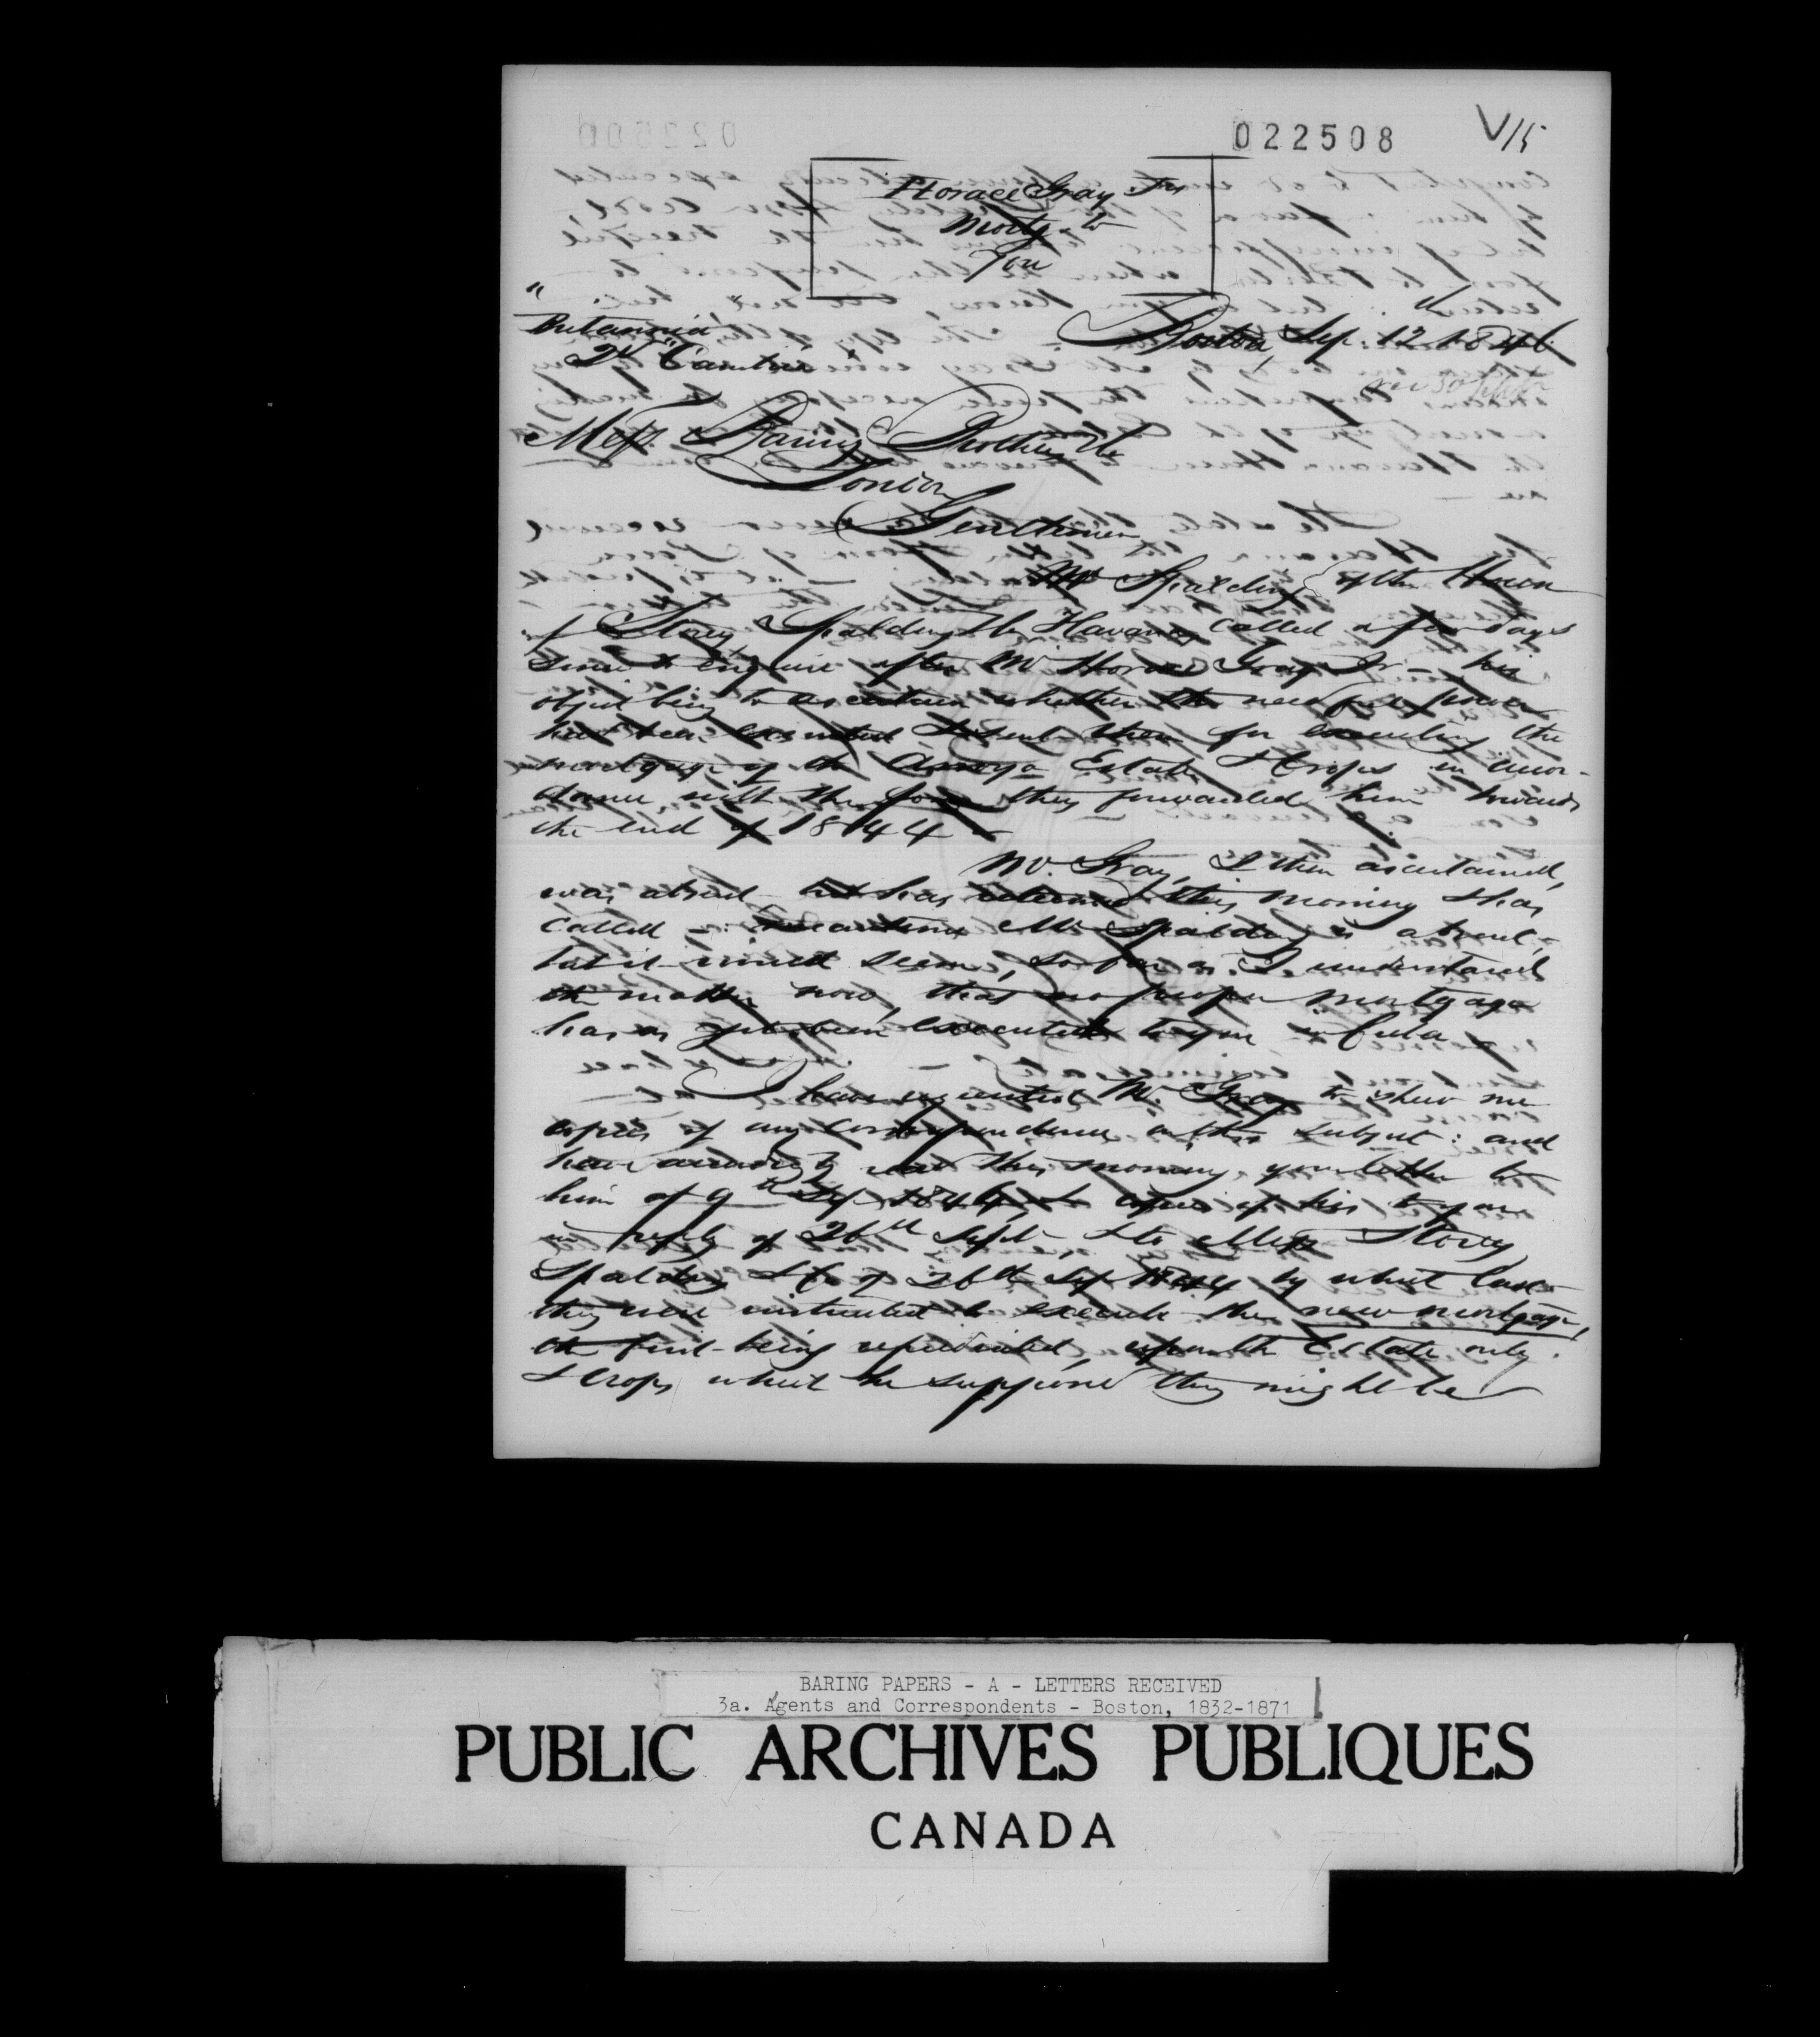 022508
V/15
Horace Gray Jr
Mortg. to
You
"Britannia"
2d "Cambria"
Boston, Sep. 12 1846
Messrs. Baring Brothers &Co
London
Gentlemen
Mr Spalding of the House
of Storey, Spalding &Co Havana, called a few days
since to enquire after Mr Horace Gray Jr - his
object being to ascertain whether the necessary power
had been executed & sent them for executing the
mortgage of the Estate & Crops in accor-
dance with the form they forwarded him towards
the end of 1844
Mr. Gray, I then ascertained,
was absent - but has returned this morning & has
called - : meantime Mr Spalding is absent,
but it would seem, so far as I understand
the matter now, that no proper mortgage
has as yet been executed to you in Cuba
I have requested Mr. Gray to shew me
copies of any correspondence on this subject: and
have accordingly read this morning your letter to
him of 9th Sep 1844, & copies of his to you
in reply of 26th Sept - & to Messrs Storey
Spalding &Co of 26th Sep 1844 by which last
they were instructed to execute the new mortgage,
the first being repudiated, upon the Estate only
& Crops which he supposed they might be
BARING PAPERS - A - LETTERS RECEIVED
3a. Agents and Correspondents - Boston, 1832-1871
PUBLIC ARCHIVES PUBLIQUES
CANADA